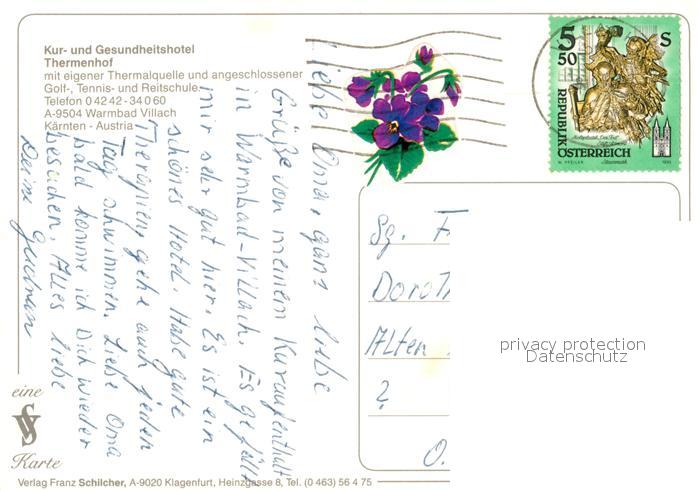 Kur- und Gesundheitshotel
Thermenhof
mit eigener Thermalquelle und angeschlossener
Golf-, Tennis- und Reitschule
Telefon 0 42 42 - 34 0 60
A-9504 Warmbad Villach
Kärnten - Austria
Liebe Oma, ganz liebe
Grüße von meinem Kuraufenthalt
in Warmbad-Villach. Es gefällt
mir sehr gut hier. Es ist ein
schönes Hotel. Habe gute
Therapien, gehe auch jeden
Tag schwimmen. Liebe Oma
bald komme ich Dich wieder
besuchen, Alles liebe
Deine Gudrun
5 50 S
REPUBLIK
ÖSTERREICH
Sg. F
Doroth
Alten
2
O.
privacy protection
Datenschutz
eine
Karte
Verlag Franz Schilcher, A-9020 Klagenfurt, Heinzgasse 8, Tel. (0 463) 56 4 75